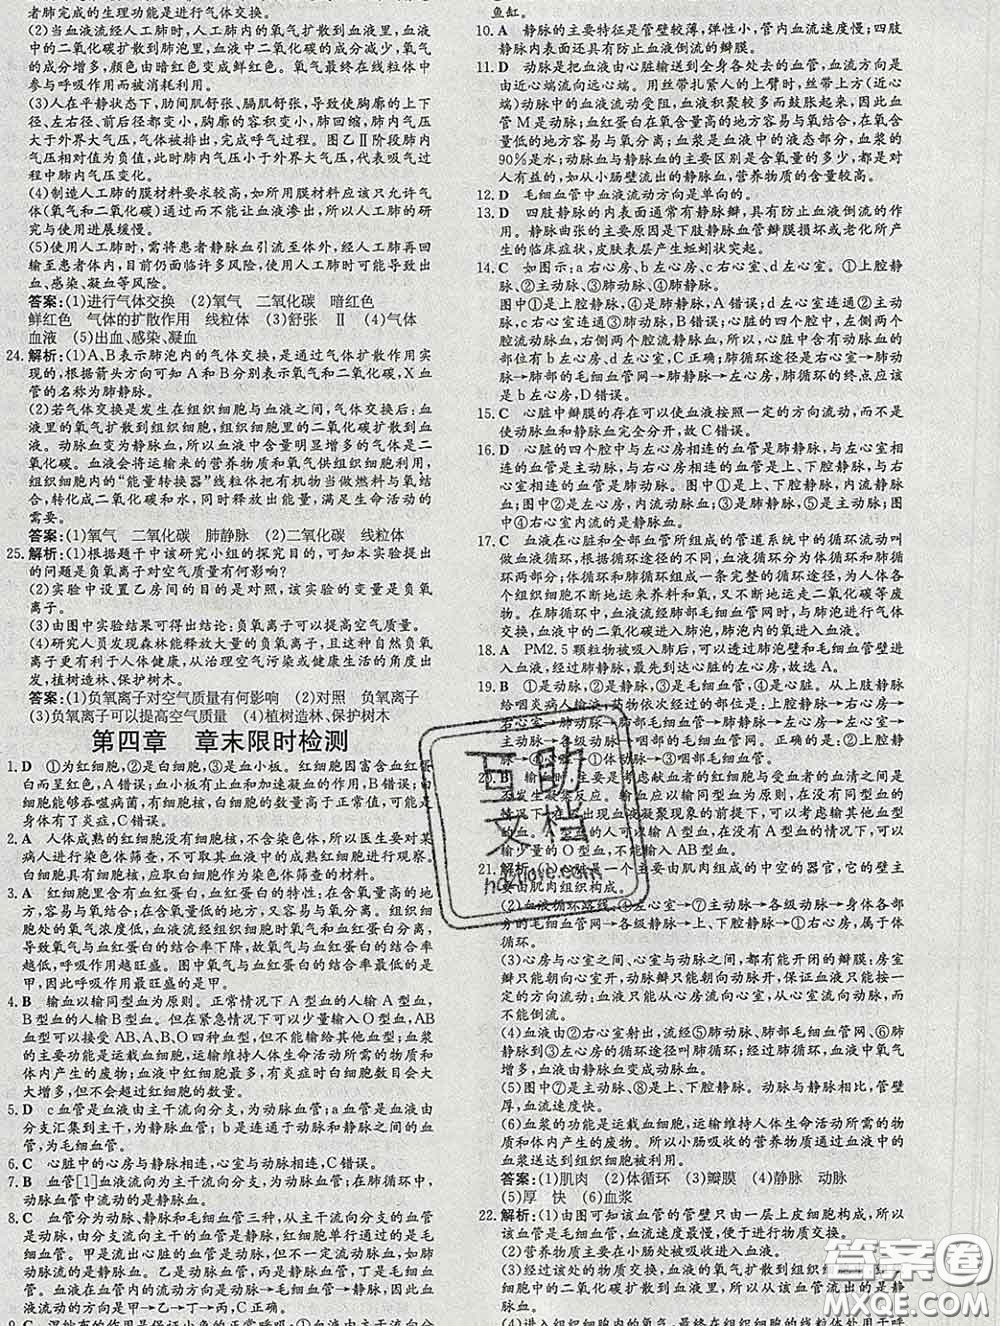 者肺完成的生理功能是进行气体交换。
(2)当血液流经人工肺时,人工肺内的氧气扩散到血液里,血液中的二氧化碳扩散到肺泡里,血液中二氧化碳的成分减少,氧气的成分增多,颜色由暗红色变成鲜红色。氧气最终在线粒体中参与呼吸作用而被消耗利用。
(3)人在平静状态下,肋间肌舒张、膈肌舒张,导致使胸廓的上下径、左右径、前后径都变小,胸廓的容积变小,肺回缩,肺内气压大于外界大气压,气体被排出,完成呼气过程。图乙Ⅱ阶段肺内气压相对值为负值,此时肺内气压小于外界大气压,代表吸气过程中肺内气压变化。
(4)制造人工肺的膜材料要求较高,如所用膜材料应该只允许气体(氧气和二氧化碳)通过而不能让血液渗出,所以人工肺的研究与使用进展缓慢。
(5)使用人工肺时,需将患者静脉血引流至体外,经人工肺再回输至患者体内,目前仍面临许多风险,使用人工肺时可能导致出血、感染、凝血等风险。
答案:(1)进行气体交换 (2)氧气 二氧化碳 暗红色
鲜红色 气体的扩散作用 线粒体 (3)舒张 Ⅱ (4)气体
血液 (5)出血、感染、凝血
24.解析:(1)A、B表示肺泡内的气体交换,是通过气体扩散作用实现的,根据箭头方向可知A和B分别表示氧气和二氧化碳,X血管的名称为肺静脉。
(2)若气体交换是发生在组织细胞与血液之间,气体交换后:血液里的氧气扩散到组织细胞,组织细胞里的二氧化碳扩散到血液。动脉血变为静脉血,所以血液中含量明显增多的气体是二氧化碳。血液会将运输来的营养物质和氧气供组织细胞利用,组织细胞内的“能量转换器”线粒体把有机物当做燃料与氧结合,转化成二氧化碳和水,同时释放出能量,满足生命活动的需要。
答案:(1)氧气 二氧化碳 肺静脉 (2)二氧化碳 线粒体
25.解析:(1)根据题干中该研究小组的探究目的,可知本实验提出的问题是负氧离子对空气质量有何影响?
(2)实验中设置乙房间的目的是对照,该实验的变量是负氧离子。
(3)由图中实验结果可得出结论:负氧离子可以提高空气质量。
(4)研究人员发现森林能释放大量的负氧离子,且这种自然负氧离子更有利于人体健康,从治理空气污染或健康生活的角度出发,植树造林、保护树木。
答案:(1)负氧离子对空气质量有何影响 (2)对照 负氧离子
(3)负氧离子可以提高空气质量 (4)植树造林、保护树木
第四章 章末限时检测
1.D ①为红细胞,②是白细胞,③是血小板。红细胞因富含血红蛋白而呈红色,A错误;血小板有止血和加速凝血的作用,B错误;白细胞能够吞噬病菌,有细胞核,白细胞的数量高于正常值,可能是身体有了炎症,C错误。
2.A 人体成熟的红细胞没有细胞核,不含染色体,所以医生要对某病人进行染色体筛查,不可取其血液中的成熟红细胞进行观察。白细胞具有细胞核,应取白细胞作为染色体筛查的材料。
3.A 红细胞里含有血红蛋白,血红蛋白的特性:在含氧量高的地方,容易与氧结合;在含氧量低的地方,又容易与氧分离。组织细胞处的氧气浓度低,血液流经组织细胞时氧气和血红蛋白分离,导致氧气与血红蛋白的结合率下降,故氧气与血红蛋白的结合率越低,呼吸作用越旺盛。图中氧气与血红蛋白的结合率最低的是甲,故呼吸作用最旺盛的是甲。
4.B 输血以输同型血为原则。正常情况下A型血的人输A型血,B型血的人输B型血。但在紧急情况下,也可以输入O型血,AB血型可以接受AB、A、B、O四种血型,但不能输给其他血型;血浆的主要功能是运载血细胞,运输维持人体生命活动所需的物质和体内产生的废物。血液中红细胞最多,有炎症时白细胞数目会大大增多,但不会超过红细胞的数量。
5.D c血管是血液由主干流向分支,为动脉血管;a血管是血液由分支汇集到主干,为静脉血管;b是连通于动脉和静脉之间的血管,为毛细血管。
6.C 心脏中的心房与静脉相连,心室与动脉相连,C错误。
7.B 血管[1]血液流向为主干流向分支,为动脉血管,在肺循环中,动脉血管中流动的是静脉血。
8.C 血管分为动脉、静脉和毛细血管三种,从主干流向分支的是动脉,由分支流向主干的血管是静脉,红细胞单行通过的是毛细血管。甲是流出心脏的血管是动脉,但不一定流动脉血,如肺动脉流的是静脉血。乙是动脉血管,丙是静脉血管,丁是毛细血管,血液流动的方向是甲→乙→丁→丙,C正确。
鱼缸。
10.A 静脉的主要特征是管壁较薄,弹性小,管内血流速度慢;四肢静脉内表面还具有防止血液倒流的瓣膜。
11.D 动脉是把血液由心脏输送到全身各处去的血管,血流方向是由近心端流向远心端。用丝带扎紧人的上臂时,丝带上方(近心端)动脉中的血液流动受阻,血液积聚较多而鼓胀起来,因此血管M是动脉;血红蛋白在氧含量高的地方容易与氧结合,在氧含量低的地方容易与氧分离;血浆是血液中的液态部分,血浆的90%是水;动脉血与静脉血的主要区别是含氧量的多少,都是对人有益的,如从小肠壁流出的静脉血,营养物质的含量较高。
12.D 毛细血管中血液流动方向是单向的。
13.D 四肢静脉的内表面通常有静脉瓣,具有防止血液倒流的作用。静脉曲张的主要原因是下肢静脉血管瓣膜损坏或老化所产生的临床症状,皮肤表层产生蚯蚓状突起。
14.C 如图示:a右心房、b左心房、c右心室、d左心室。①上腔静脉、②主动脉、③肺动脉、④肺静脉。
图中①是上腔静脉,④是肺静脉,A错误;d左心室连通②主动脉,c右心室连通③肺动脉,B错误;心脏的四个腔中,左侧两个腔流动脉血,右侧两个腔流静脉血,所以,心脏中含有动脉血的部位有b左心房和d左心室,C正确;肺循环途径是右心室→肺动脉→肺部的毛细血管网→肺静脉→左心房,肺循环的终点应该是b左心房,D错误。
15.C 心脏中瓣膜的存在可以使血液按照一定的方向流动,而不是使动脉血和静脉血完全分开,故C错误。
16.D 心脏的四个腔中与左心房相连的血管是肺静脉,与左心室相连的血管是主动脉,与右心房相连的是上、下腔静脉,与右心室相连的血管是肺动脉。图中①是上腔静脉,内流静脉血;图中②是左心房,内流动脉血;③是肺静脉,⑤是主动脉;图中④右心室内流的是静脉血。
17.C 血液在心脏和全部血管所组成的管道系统中的循环流动叫做血液循环,根据循环途径的不同,血液循环分为体循环和肺循环两部分;体循环和肺循环组成一条完整的循环途径,为人体各个组织细胞不断地运来养料和氧,又不断地运走二氧化碳等废物。在肺循环中,血液流经肺部毛细血管网时,与肺泡进行气体交换,血液中的二氧化碳进入肺泡,肺泡内的氧进入血液。
18.A PM2.5颗粒物被吸入肺后,可以透过肺泡壁和毛细血管壁进入血液,然后经过肺静脉,最先到达心脏的左心房,故选A。
19.B ①是动脉,②是静脉,③是毛细血管,④是心脏。从上肢静脉给咽炎病人输液,药物依次经过的部位是:上肢静脉→上腔静脉→右心房→右心室→肺动脉→肺部毛细血管→肺静脉→左心房→左心室→主动脉→咽部毛细血管网。正确的是:②上腔静脉→④心脏→①主动脉→③咽部毛细血管。
20.B 输血时,主要是考虑献血者的红细胞与受血者的血清之间是否发生凝集反应。输血应以输同型血为原则,在没有同型血的情况下,在不出现血液凝聚现象的前提下,可以考虑输其他血型的血。A型血的人可以输A型血,在没有A型血的情况下,可以输少量的O型血,不能输入AB型血。
21.解析:(1)心脏是一个主要由肌肉组成的中空的器官,它的壁主要由肌肉组织构成。
(2)血液循环路线,④左心室→⑦主动脉→各级动脉→身体各部分的毛细血管网→各级静脉→上、下腔静脉→①右心房,属于体循环。
(3)心房与心室之间、心室与动脉之间,都有能开闭的瓣膜:房室瓣只能朝向心室开,动脉瓣只能朝向动脉开,保证血液只能按一定的方向流动:血液只能从心房流向心室,从心室流向动脉,而不能倒流。
(4)血液由②右心室射出,流经⑤肺动脉、肺部毛细血管网、⑥肺静脉,回到③左心房的循环途径叫肺循环;经过肺循环,血液中氧气增多,由静脉血变成动脉血。
(5)图中⑦是主动脉、⑧是上、下腔静脉。动脉与静脉相比,管壁厚,血流速度快。
(6)血浆的主要功能是运载血细胞,运输维持人体生命活动所需的物质和体内产生的废物。所以小肠吸收的营养物质通过血液中的血浆运送达到组织细胞被利用。
答案:(1)肌肉 (2)体循环 (3)瓣膜 (4)静脉 动脉
(5)厚 快 (6)血浆
22.解析:(1)由图可知该血管的管壁只由一层上皮细胞构成,所以该血管为毛细血管,血流速度最慢,便于进行物质交换。
(2)营养物质主要在小肠处被吸收进入血液。
互助文档
hdzlove.com
答案圈
MXQE.COM